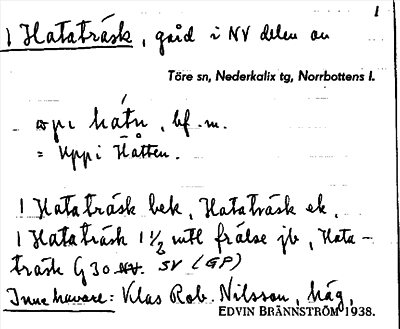 1
1 Hataträsk, gård i NV delen av
Töre sn, Nederkalix tg, Norrbottens l.
hátn, bf. m.
= Uppi Håtten.
1 Hataträsk bek, Hataträsk ek,
1 Hataträsk 1 1/2 mtl frälse jb, Hata-
träsk G 30 SV (GP)
Innehavare: Klas Rob. Nilsson, häg,
EDVIN BRÄNNSTRÖM 1938.